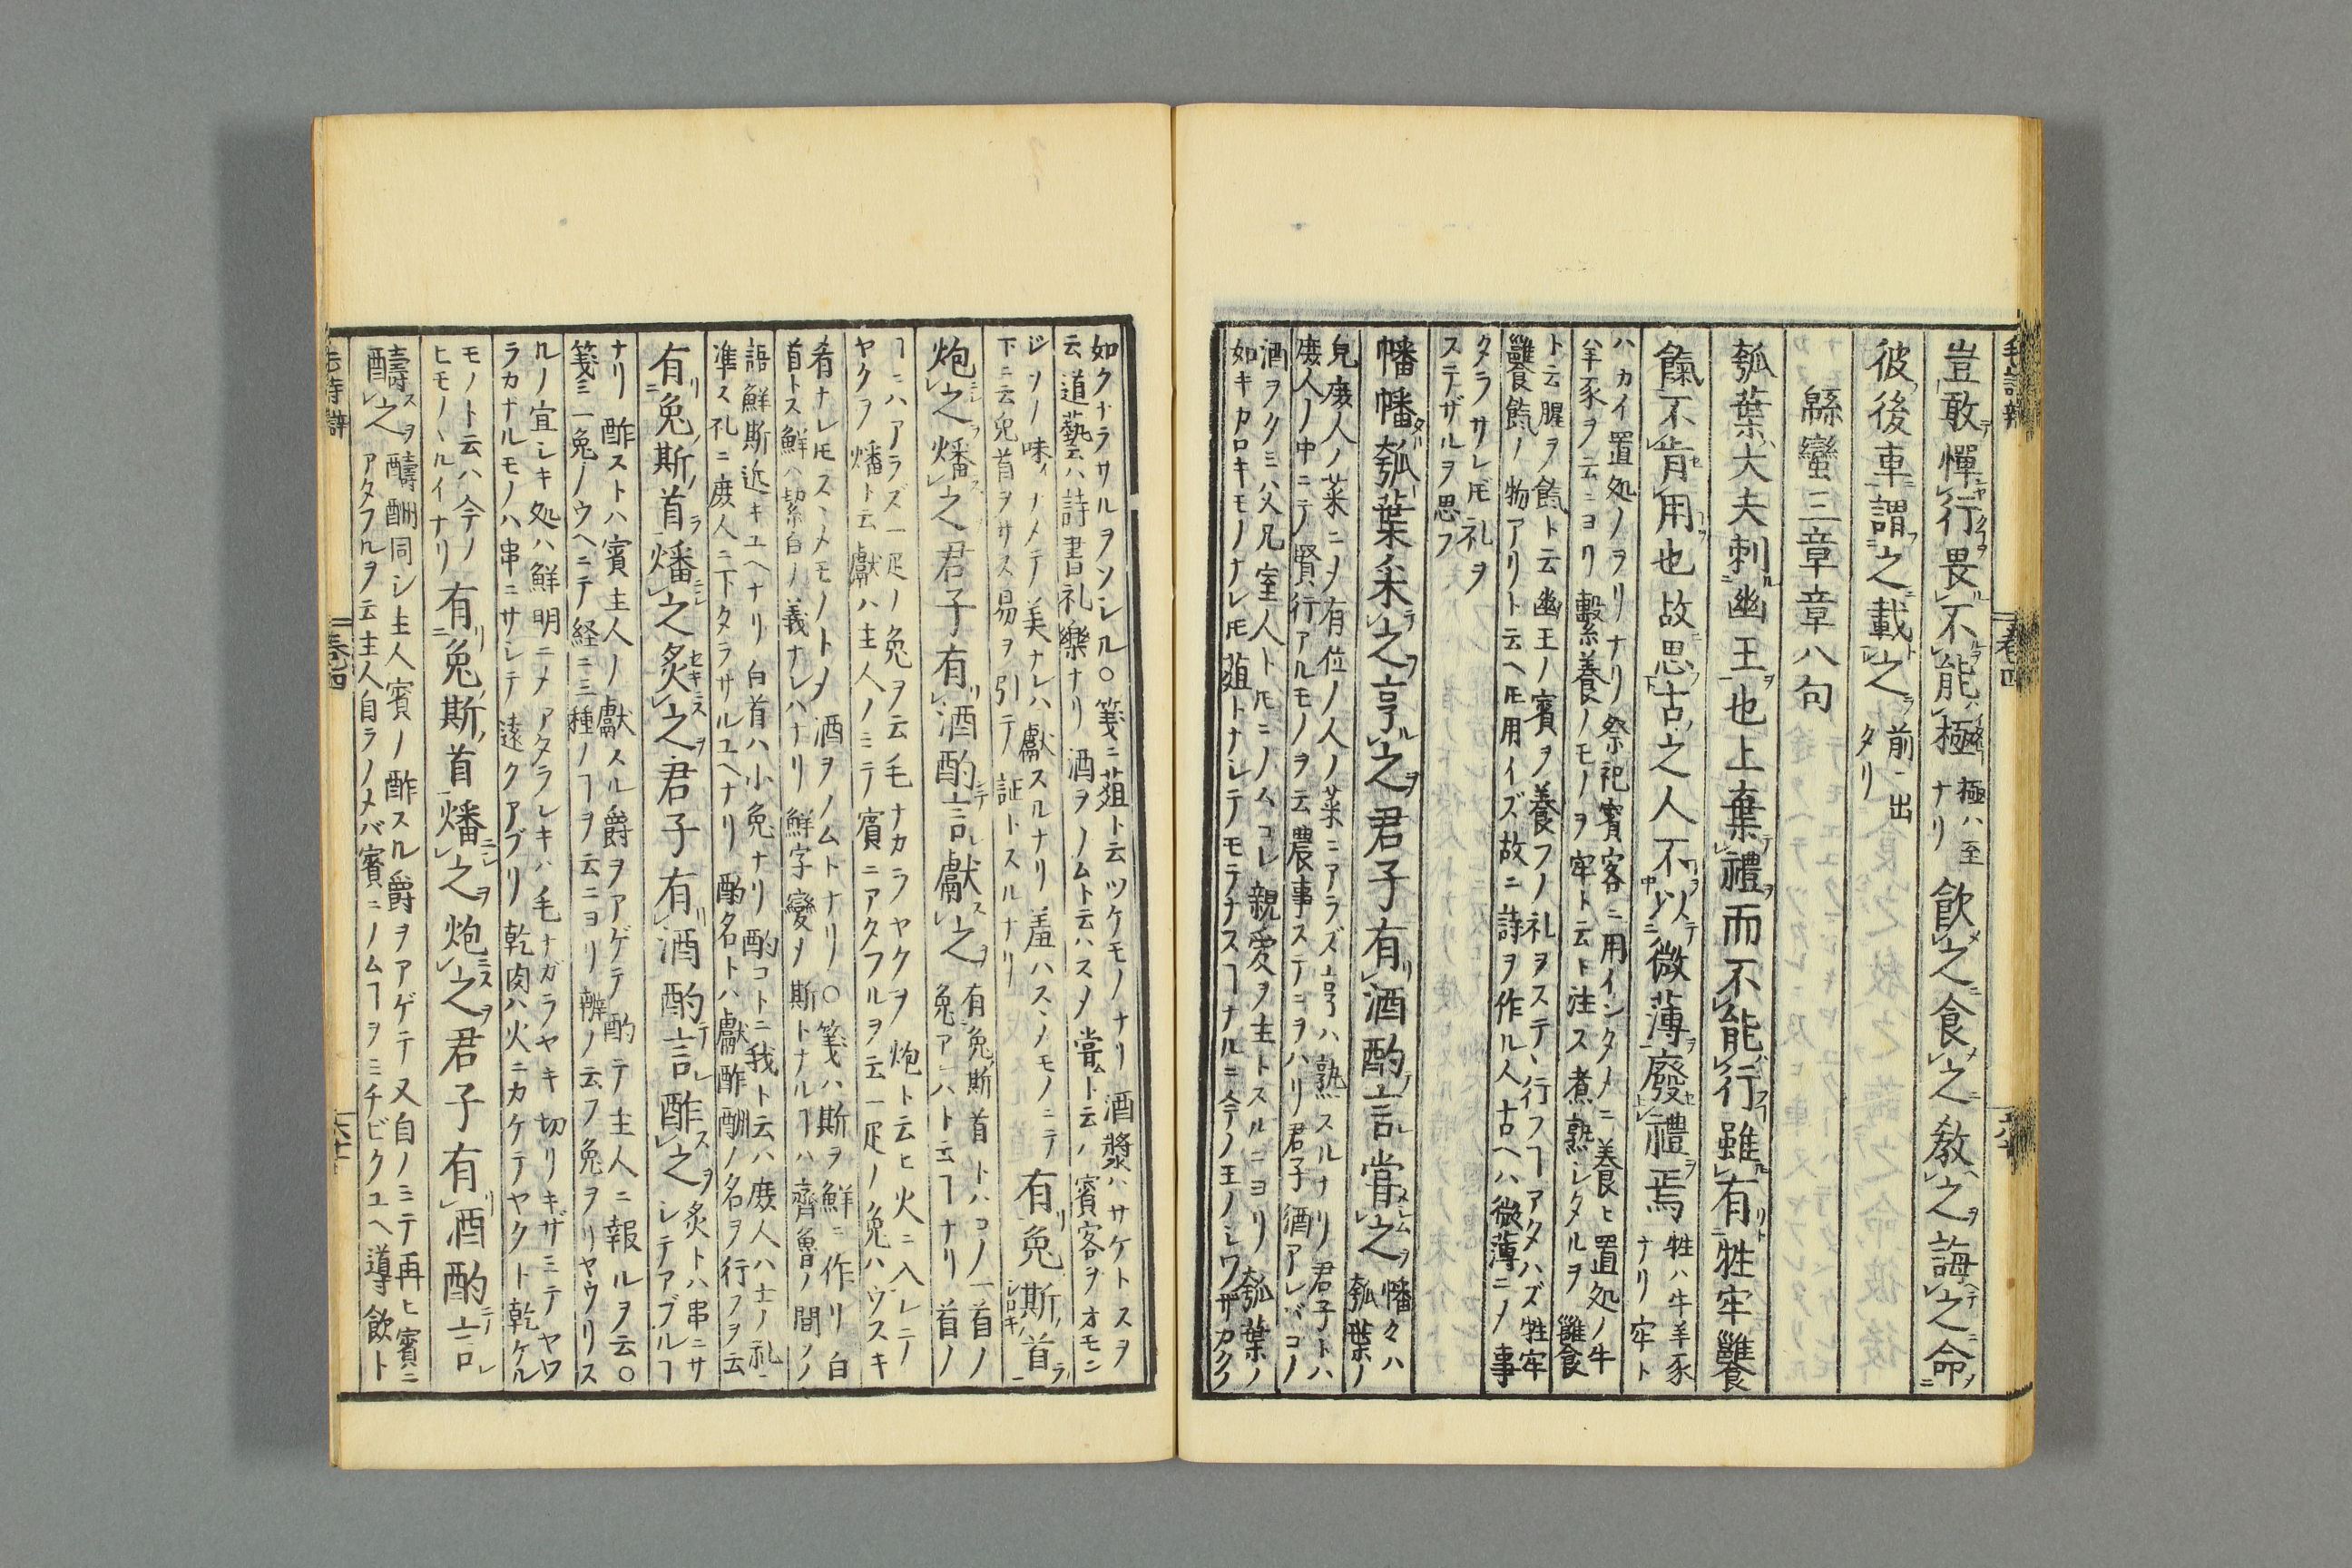 毛詩辨
巻四
豈敢憚行畏不能極極ハ至ナリ飲之食之教之誨之命
彼後車謂之載之前ニ出タリ
緜蠻三章章八句
瓠葉大夫刺幽王也上棄禮而不能行雖有牲牢饔
餼不肯用也故思古之人不以微薄廢禮焉牲ハ牛羊豕ナリ牢ト
ハカイ置処ノヲリナリ祭祀賓客ニ用インタメニ養ヒ置処ノ牛
羊豕ヲ云ニヨリ繫養ノモノヲ牢ト云ト注ス煮熟シタルヲ饔
ト云腥ヲ餼ト云幽王ノ賓ヲ養フノ礼ヲステヽ行フヿアタハズ牲牢
饔餼ノ物アリト云ヘ𪜈用イズ故ニ詩ヲ作ル人古ヘハ微薄ニノ事
タラサレ𪜈礼ヲ
ステザルヲ思フ
幡幡瓠葉采之亨之君子有酒酌言嘗之幡々ハ瓠葉ノ
皃庶人ノ菜ニノ有位ノ人ノ菜ニアラズ亨ハ熟スルナリ君子トハ
庶人ノ中ニテノ賢行アルモノヲ云農事ステニヲハリ君子酒アレバコノ
酒ヲクミ父兄室人ト𪜈ニノムコレ親愛ヲ主トスルニヨリ瓠葉ノ
如キカロキモノナレ𪜈菹トナシテモテナスヿナルニ今ノ王ノシワザカクノ
如クナラサルヲソシル○箋ニ菹ト云ツケモノナリ酒漿ハサケトスヲ
云道藝ハ詩書礼樂ナリ酒ヲノムト云ハスメ嘗ムト云ノ賓客ヲオモン
ジソノ味イナメテ美ナレハ獻スルナリ羞ハスヽノモノニテ有兔斯首
下ニ云兔首ヲサス易ヲ引テ証トスルナリ
炮之燔之君子有酒酌言獻之有兔斯首トハコノ一首ノ兔アレハト云ヿナリ首ノ
ヿニハアラズ一疋ノ兔ヲ云毛ナカラヤクヲ炮ト云ヒ火ニ入レテ
ヤクヲ燔ト云獻ハ主人ノミテ賓ニアタフルヲ云一疋ノ兔ハウスキ
肴ナレ𪜈スヽメモノトメ酒ヲノムトナリ○箋ハ斯ヲ鮮ニ作リ白
首トス鮮ハ絜白ノ義ナレハナリ鮮字變メ斯トナルヿハ齊魯ノ間ノ
語鮮斯近キユヘナリ白首ハ小兔ナリ酌コトニ我ト云ハ庶人ハ士ノ礼ニ
準ス礼ニ庶人ニ下タラサルユヘナリ酌名トハ獻酢酬ノ名ヲ行フヲ云
有兔斯首燔之炙之君子有酒酌言酢之炙トハ串ニサシテアブルヿ
ナリ酢ストハ賓主人ノ獻スル爵ヲアゲテ酌テ主人ニ報ルヲ云○
箋ニ一兔ノウヘニテ経ニ三種ノヿヲ云ニヨリ辨ノ云フ兔ヲリヤウリス
ルノ宜シキ処ハ鮮明ニメアタラレキハ毛ナガラヤキ切リキザミテヤワ
ラカナルモノハ串ニサシテ遠クアブリ乾肉ハ火ニカケテヤクト乾ケル
モノト云ハ今ノヒモノヽルイナリ有兔斯首燔之炮之君子有酒酌言
醻之醻酬同シ主人賓ノ酢スル爵ヲアゲテ又自ノミテ再ヒ賓ニ
アタフルヲ云主人自ラノメバ賓ニノムヿヲミチビクユヘ導飲ト
毛詩辨
巻四